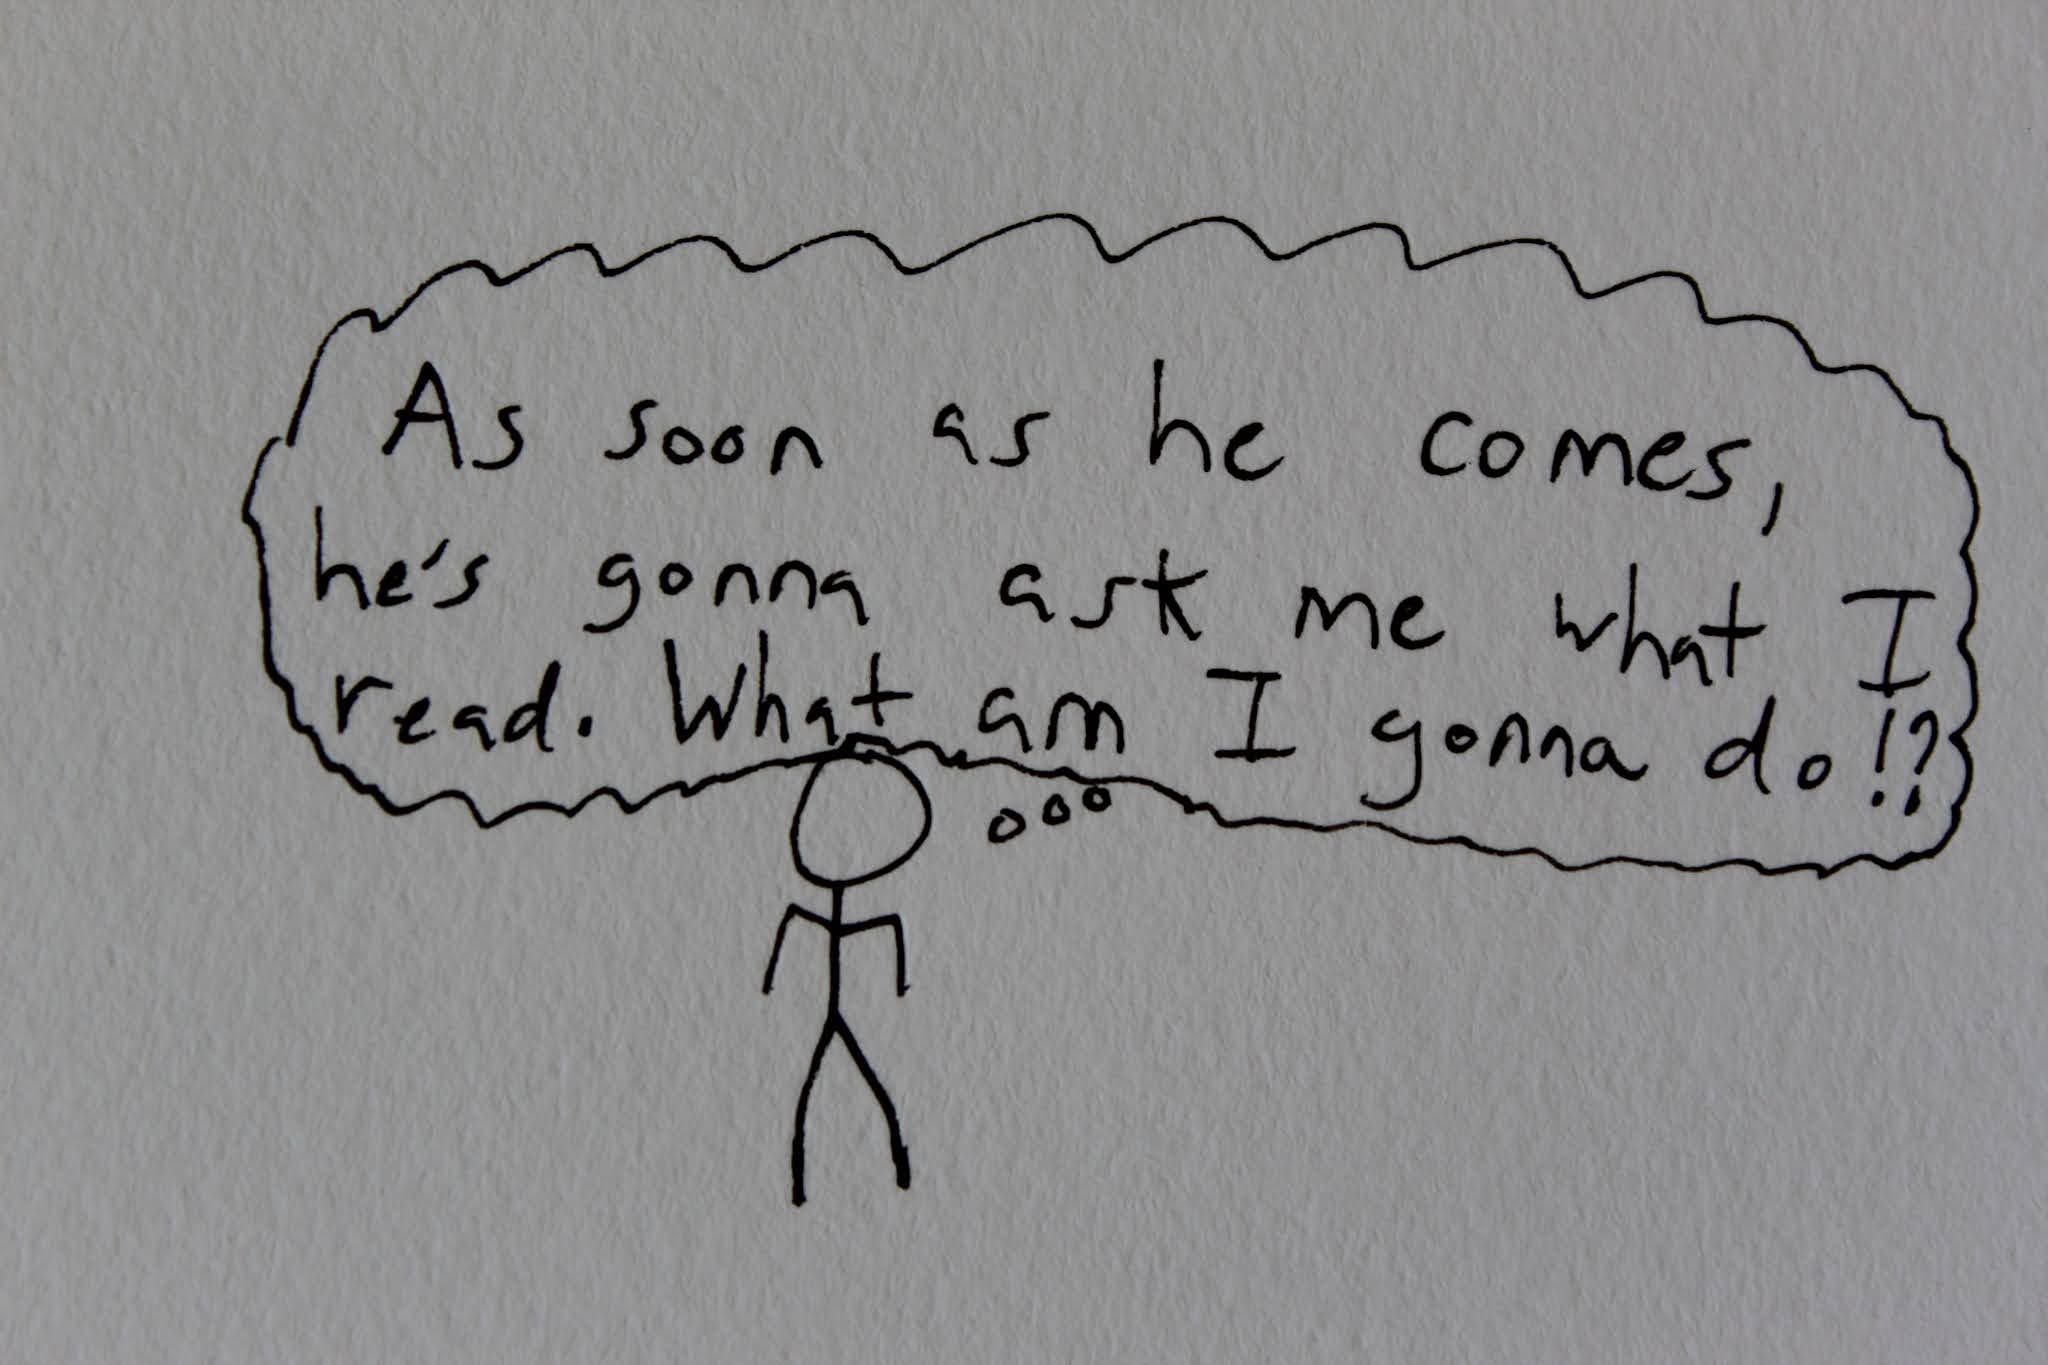 As soon as he comes,
he's gonna ask me what I
read. What am I gonna do!?